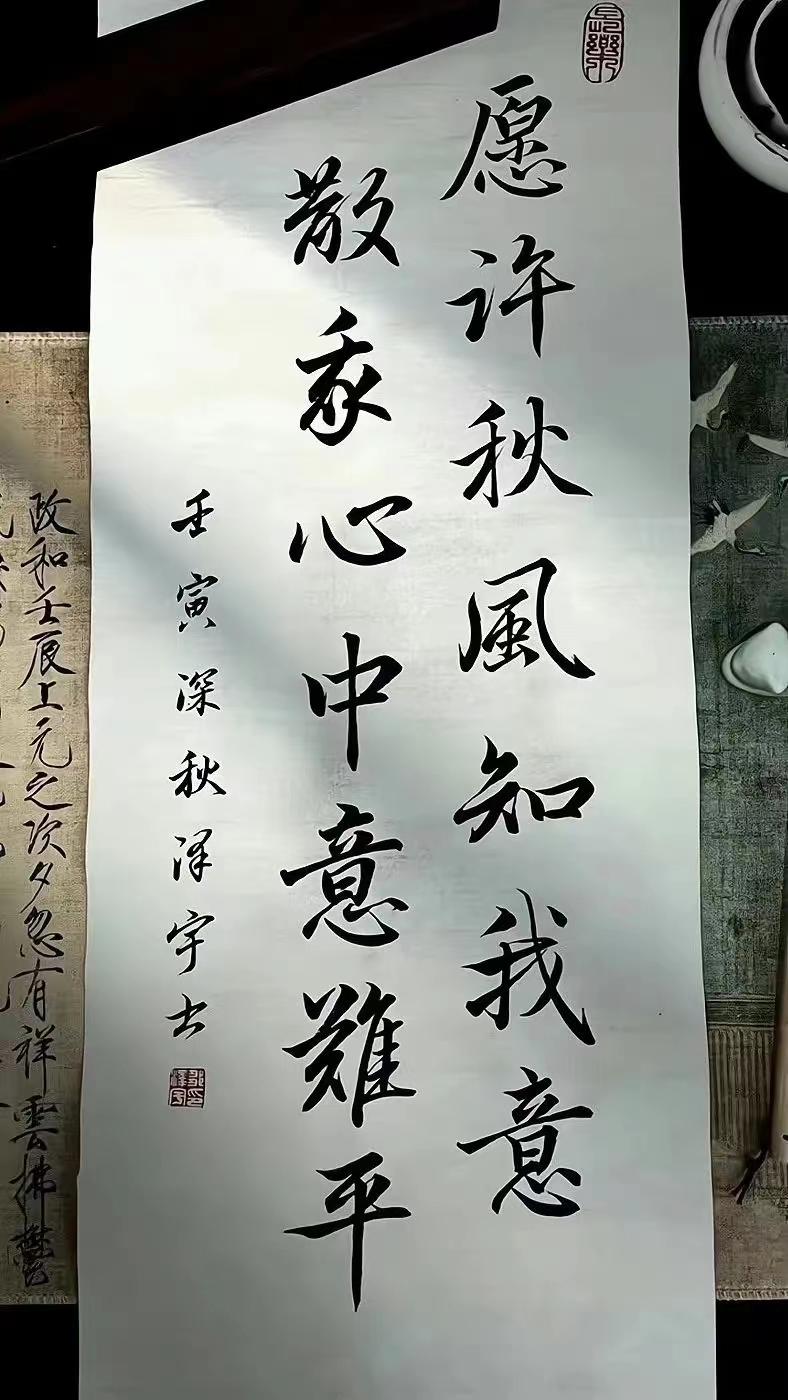 愿许秋風知我意
散我心中意難平
壬寅深秋泽宇书
長樂
政和壬辰上元之次夕忽有祥雲拂鬱